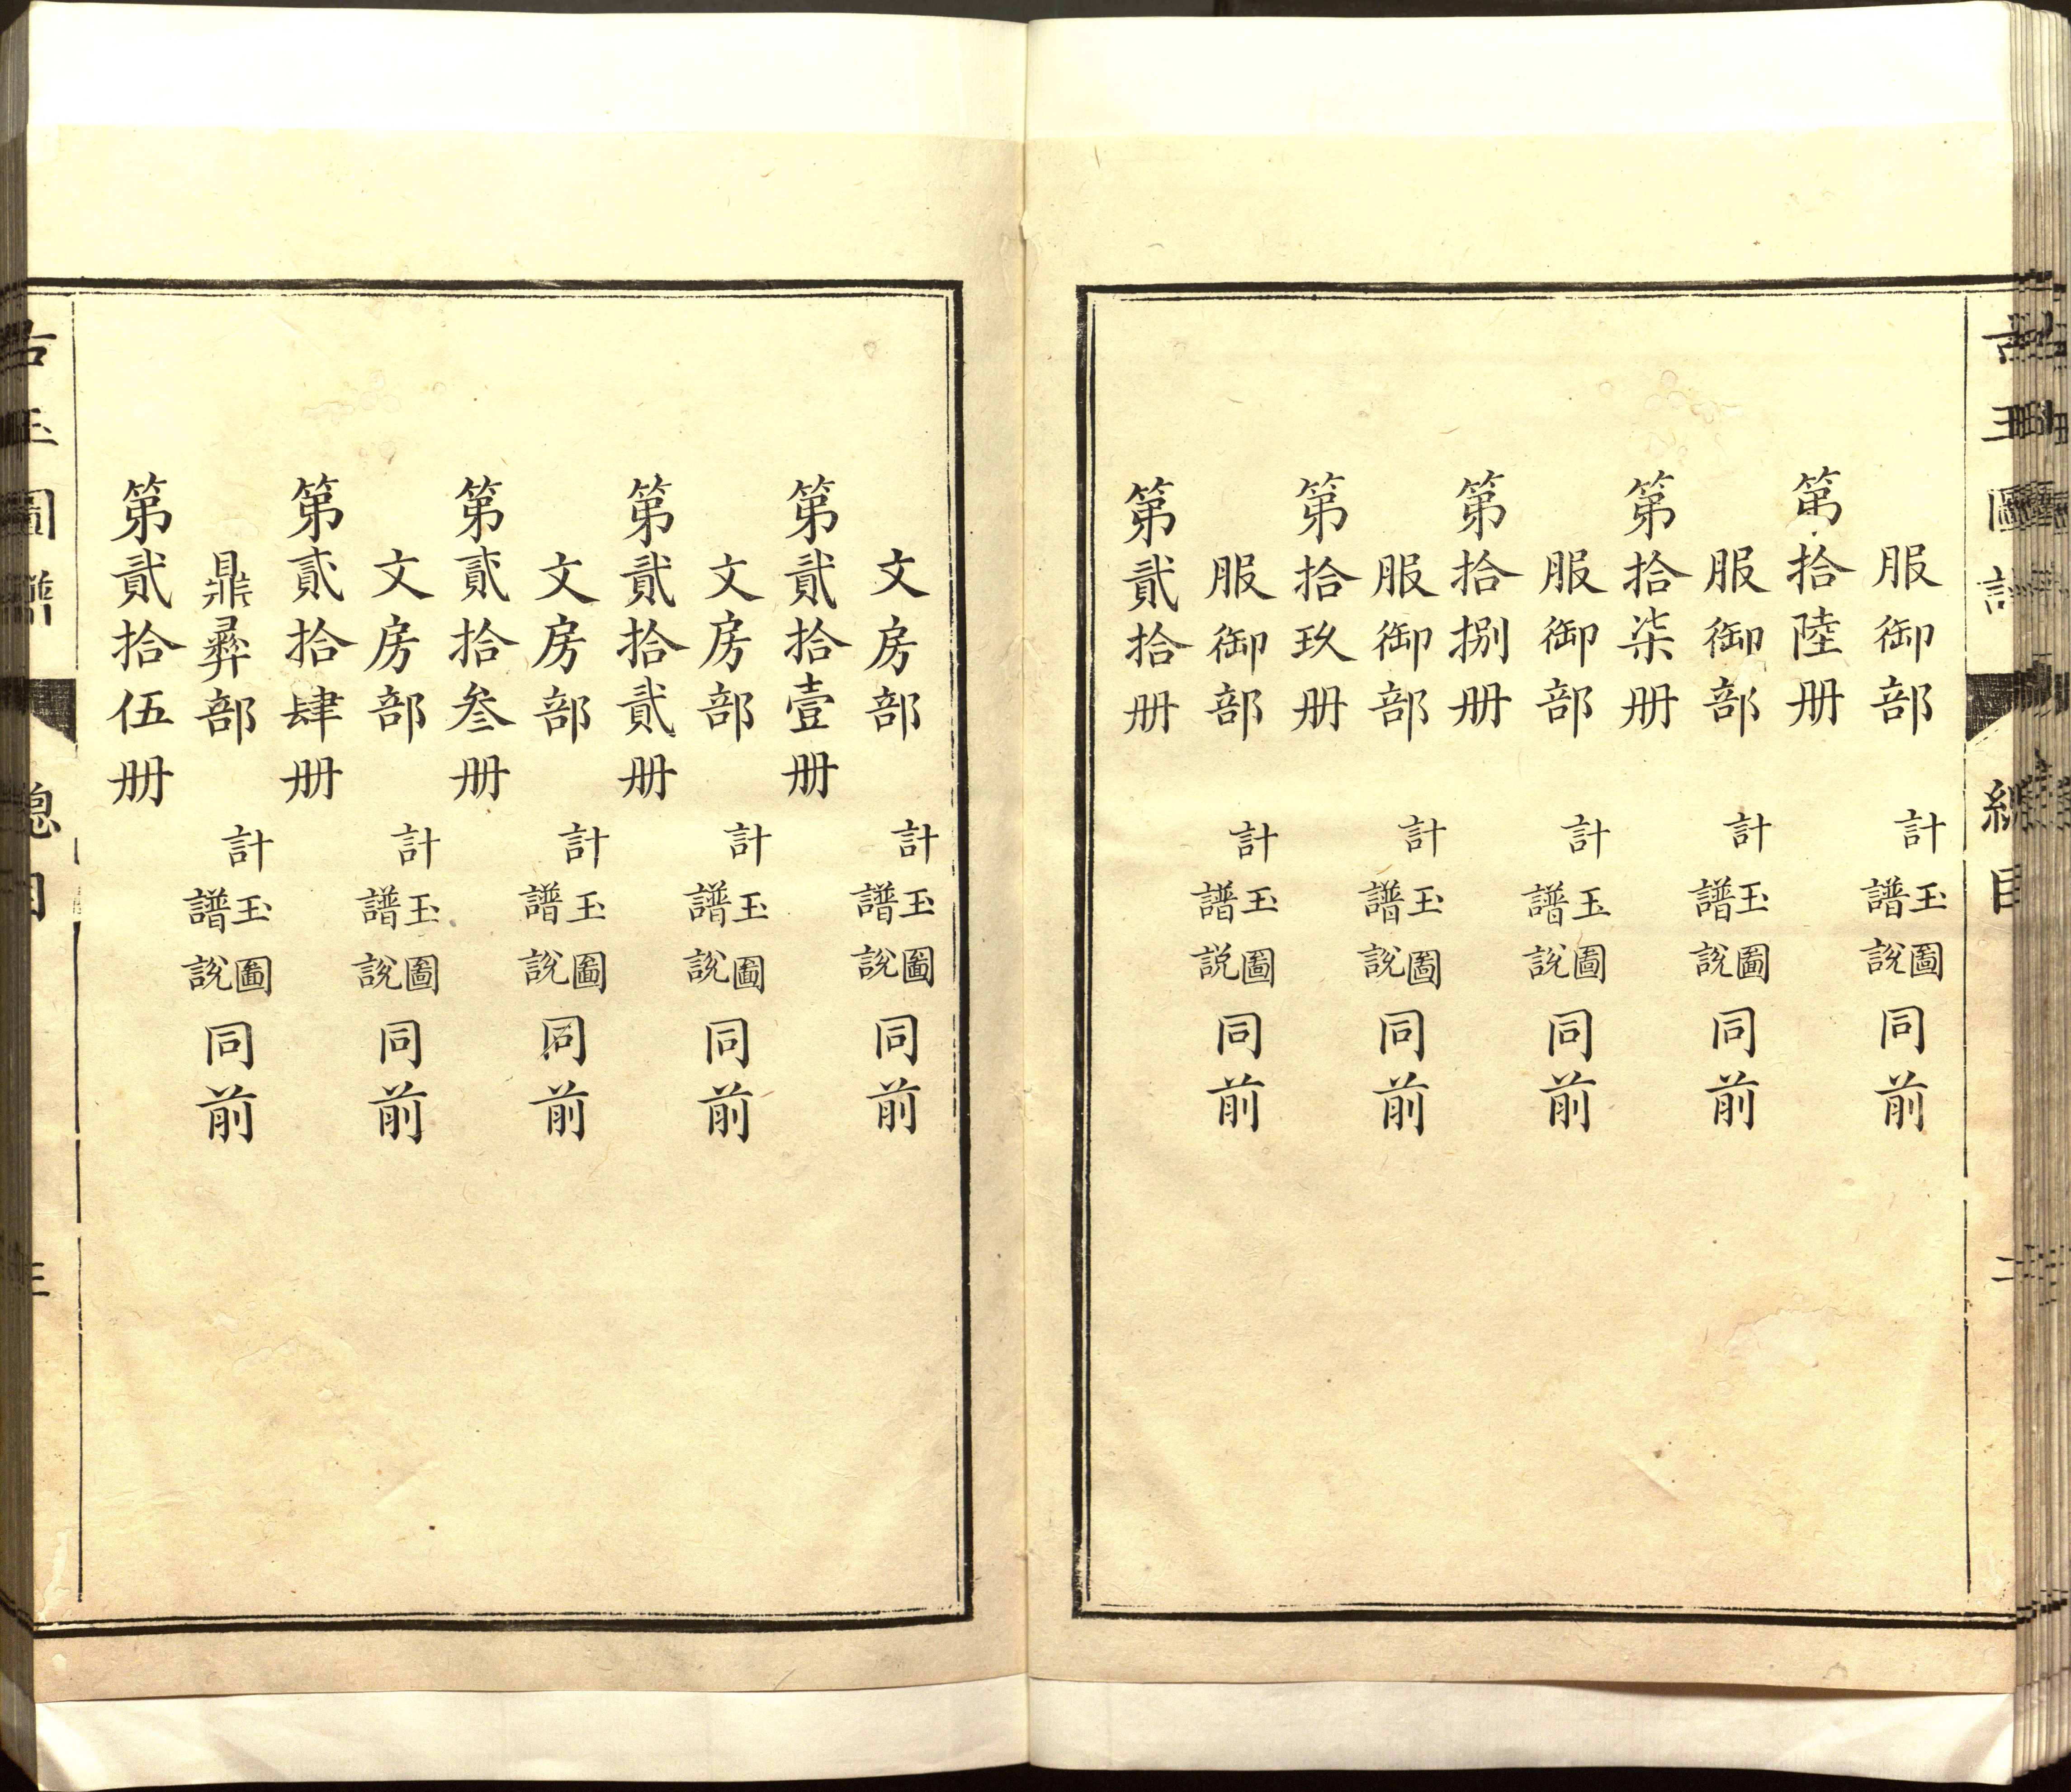 服御部 計玉圖譜說同前
第拾陸册
服御部 計玉圖譜說同前
第拾柒册
服御部 計玉圖譜說同前
第拾捌册
服御部 計玉圖譜說同前
第拾玖册
服御部 計玉圖譜説同前
第貳拾册
文房部 計玉圖譜說同前
第貳拾壹册
文房部 計玉圖譜說同前
第貳拾貳册
文房部 計玉圖譜說同前
第貳拾叁册
文房部 計玉圖譜說同前
第貳拾肆册
鼎彛部 計玉圖譜說同前
第貳拾伍册
古玉圖譜 總目 三